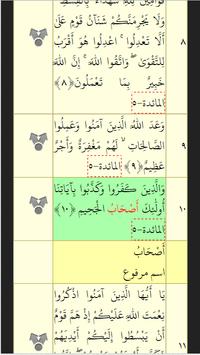 قَوَّامِينَ لِلَّهِ شُهَدَاءَ بِالْقِسْطِ
وَلَا يَجْرِمَنَّكُمْ شَنَآنُ قَوْمٍ عَلَىٰ
أَلَّا تَعْدِلُوا ۚ اعْدِلُوا هُوَ أَقْرَبُ
لِلتَّقْوَىٰ ۖ وَاتَّقُوا اللَّهَ ۚ إِنَّ اللَّهَ
خَبِيرٌ بِمَا تَعْمَلُونَ ﴿٨﴾
المائدة-٥
٨
وَعَدَ اللَّهُ الَّذِينَ آمَنُوا وَعَمِلُوا
الصَّالِحَاتِ ۙ لَهُم مَّغْفِرَةٌ وَأَجْرٌ
عَظِيمٌ ﴿٩﴾ المائدة-٥
٩
وَالَّذِينَ كَفَرُوا وَكَذَّبُوا بِآيَاتِنَا
أُولَٰئِكَ أَصْحَابُ الْجَحِيمِ ﴿١٠﴾
المائدة-٥
١٠
أَصْحَابُ
اسم مرفوع
يَا أَيُّهَا الَّذِينَ آمَنُوا اذْكُرُوا
نِعْمَتَ اللَّهِ عَلَيْكُمْ إِذْ هَمَّ قَوْمٌ
أَن يَبْسُطُوا إِلَيْكُمْ أَيْدِيَهُمْ
١١